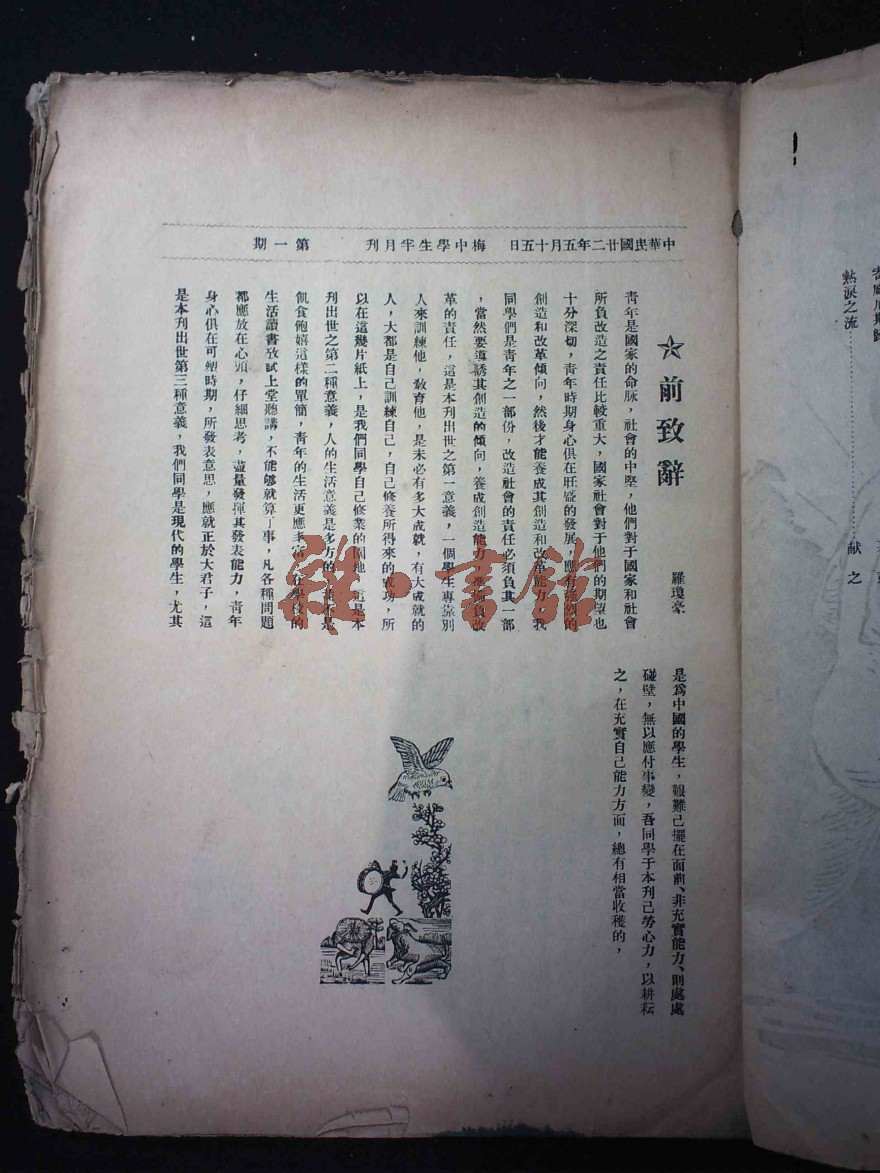 熱淚之流…………献之
中華民國廿二年五月十五日　梅中學生半月刊　第一期
☆前致辭
羅瓊豪
青年是國家的命脉，社會的中堅，他們對于國家和社會
所負改造之責任比較重大，國家社會對于他們的期望也
十分深切，青年時期身心俱在旺盛的發展，應有強烈的
創造和改革傾向，然後才能養成其創造和改革能力，我
同學們是青年之一部份，改造社會的責任必須負其一部
，當然要導誘其創造的傾向，養成創造能力，準備負改
革的責任，這是本刊出世之第一意義，一個學生專靠別
人來訓練他，敎育他，是未必有多大成就，有大成就的
人，大都是自己訓練自己，自己修養所得來的成功，所
以在這幾片紙上，是我們同學自己修業的園地，這是本
刊出世之第二種意義，人的生活意義是多方的，不是
飢食飽嬉這樣的單簡，青年的生活更應豐富，在學校的
生活讀書攷試上堂聽講，不能够就算了事，凡各種問題
都應放在心頭，仔細思考，盡量發揮其發表能力，青年
身心俱在可塑時期，所發表意思，應就正於大君子，這
是本刊出世第三種意義，我們同學是現代的學生，尤其
是爲中國的學生，艱難己擺在面前、非充實能力、則處處
碰壁，無以應付事變，吾同學于本刊己勞心力，以耕耘
之，在充實自己能力方面，總有相當收穫的，
雜·書館